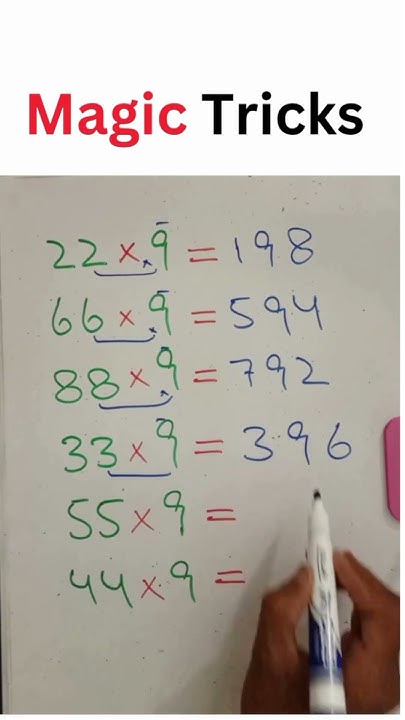 Magic Tricks
22 × 9 = 198
66 × 9 = 594
88 × 9 = 792
33 × 9 = 396
55 × 9 =
44 × 9 =